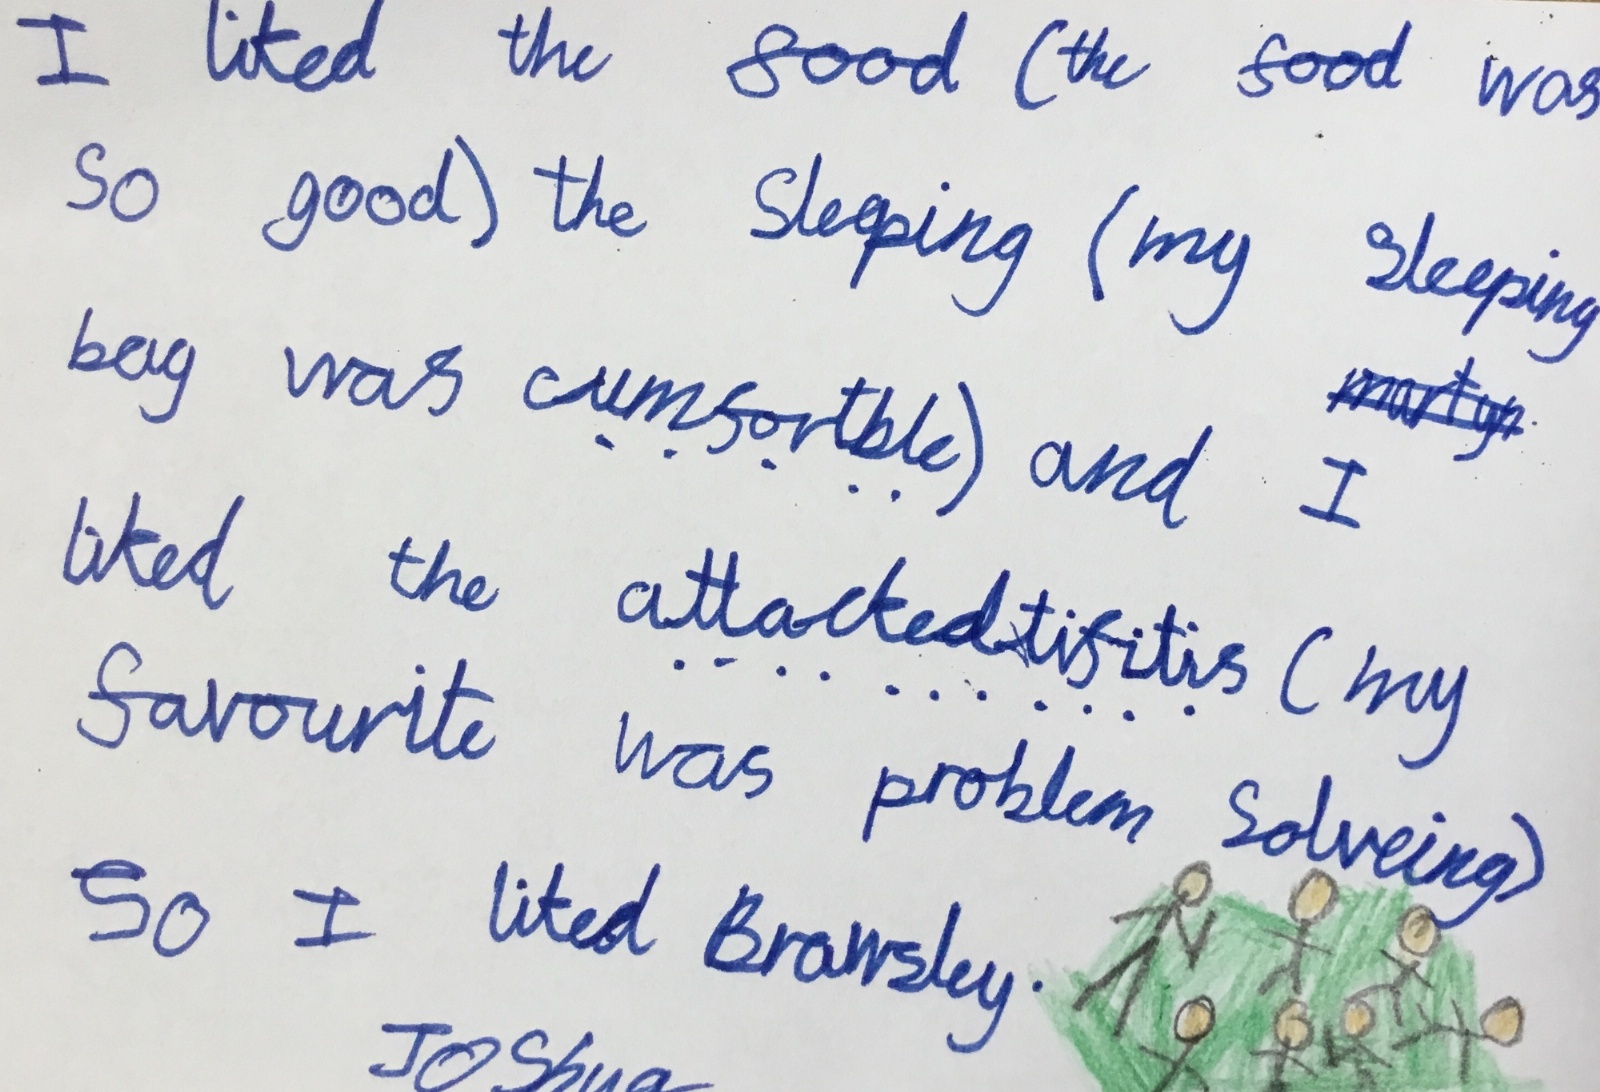 I liked the food (the food was
so good) the Sleeping (my Sleeping
bag was cumfortble) and I
liked the attackedtifitis (my
favourite was problem Solveing)
So I liked Brawsley.
Joshua